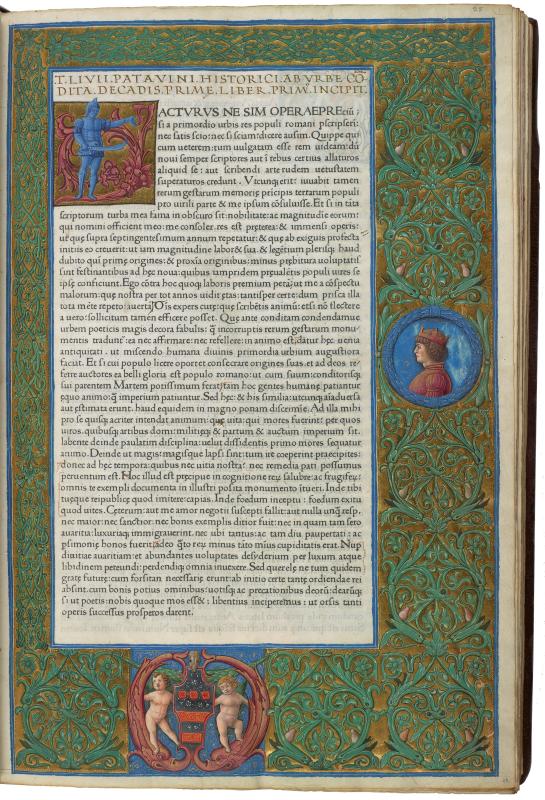 25
T. LIVII. PATAVINI. HISTORICI. AB VRBE CO
DITA. DECADIS. PRIME. LIBER. PRIM. INCIPIT.
FACTVRVS NE SIM OPERAEPREciū;
si a primordio urbis res populi romani pscripseri:
nec satis scio: nec si scum: dicere ausim. Quippe qui
cum ueterem: tum uulgatam esse rem uideam: dū
noui semper scriptores aut ī rebus certius allaturos
aliquid se: aut scribendi arte rudem uetustatem
superaturos credunt. Vtcunq; erit: iuuabit tamen
rerum gestarum memorię pricipis terrarum populi
pro uirili parte & me ipsum cōsuluisse. Et si in tāta
scriptorum turba mea fama in obscuro sit: nobilitate: ac magnitudie eorum:
qui nomini officient meo: me consoler. res est pręterea: & immensi operis:
ut quę supra septingentesimum annum repetatur: & quę ab exiguis profecta
initiis eo creuerit: ut iam magnitudine laboret sua. & legētium plerisq; haud
dubito qui primę origines: & proxīa originibus: minus prębitura uoluptatis
sint festinantibus ad hęc noua: quibus iampridem pręualētis populi uires se
ipsę conficiunt. Ego cōtra hoc quoq; laboris premium petā; ut me a cōspectu
malorum: quę nostra per tot annos uidit ętas: tantisper certe: dum prisca illa
tota mēte repeto: auertā: oīs expers curę: quę scribētis animū: etsi nō flectere
a uero: sollicitum tamen efficere posset. Quę ante conditam condendamue
urbem poeticis magis decora fabulis: q̄ incorruptis rerum gestarum monu-
mentis tradunt̄: ea nec affirmare: nec refellere: in animo est. datur hęc uenia
antiquitati. ut miscendo humana diuinis primordia urbium augustiora
faciat. Et si cui populo licere oportet consecrare origines suas: et ad deos re-
ferre auctores: ea belli gloria est populo romano: ut cum suum: conditorisq;
sui parentem Martem potissimum ferat: tam hoc gentes humanę patiantur
ęquo animo: q̄ imperium patiuntur. Sed hęc: & his similia: utcunq; aīaduersa
aut estimata erunt. haud equidem in magno ponam discrimīe. Ad illa mihi
pro se quisq; acriter intendat animum: quę uita: qui mores fuerint: per quos
uiros. quibusq; artibus domi: militięq; & partum: & auctum imperium sit.
labente deinde paulatim disciplina: uelut dissidentis primo mores sequatur
animo. Deinde ut magis: magisque lapsi sint: tum ire coeperint praecipites:
donec ad hęc tempora: quibus nec uitia nostra: nec remedia pati possumus
peruentum est. Hoc illud est pręcipue in cognitione rerū salubre: ac frugifer:
omnis te exempli documenta in illustri posita monumento ītueri. Inde tibi
tuęque reipublicę quod imitere: capias. Inde foedum inceptu: foedum exitu
quod uites. Ceterum: aut me amor negotii suscepti fallit: aut nulla unq̄. resp.
nec maior: nec sanctior: nec bonis exemplis ditior fuit: nec in quam tam sero
auaritia: luxuriaq; immigrauerint. nec ubi tantus: ac tam diu paupertati: ac
psimonię honos fuerit: adeo q̄to rerū minus: tāto mīus cupiditatis erat. Nup
diuitiae auaritiam: et abundantes uoluptates desyderium per luxum atque
libidinem pereundi: perdendiq; omnia inuexere. Sed querelę ne tum quidem
gratę futurę: cum forsitan necessarię erunt: ab initio certe tantę ordiendae rei
absint. cum bonis potius ominibus: uotisq; ac precationibus deorū: dearūq;
si ut poetis: nobis quoque mos esset: libentius inciperemus: ut orsis tanti
operis successus prosperos darent.